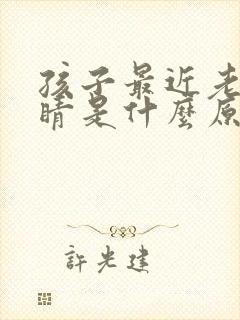 孩子最近老
睛是什麼原
許光建